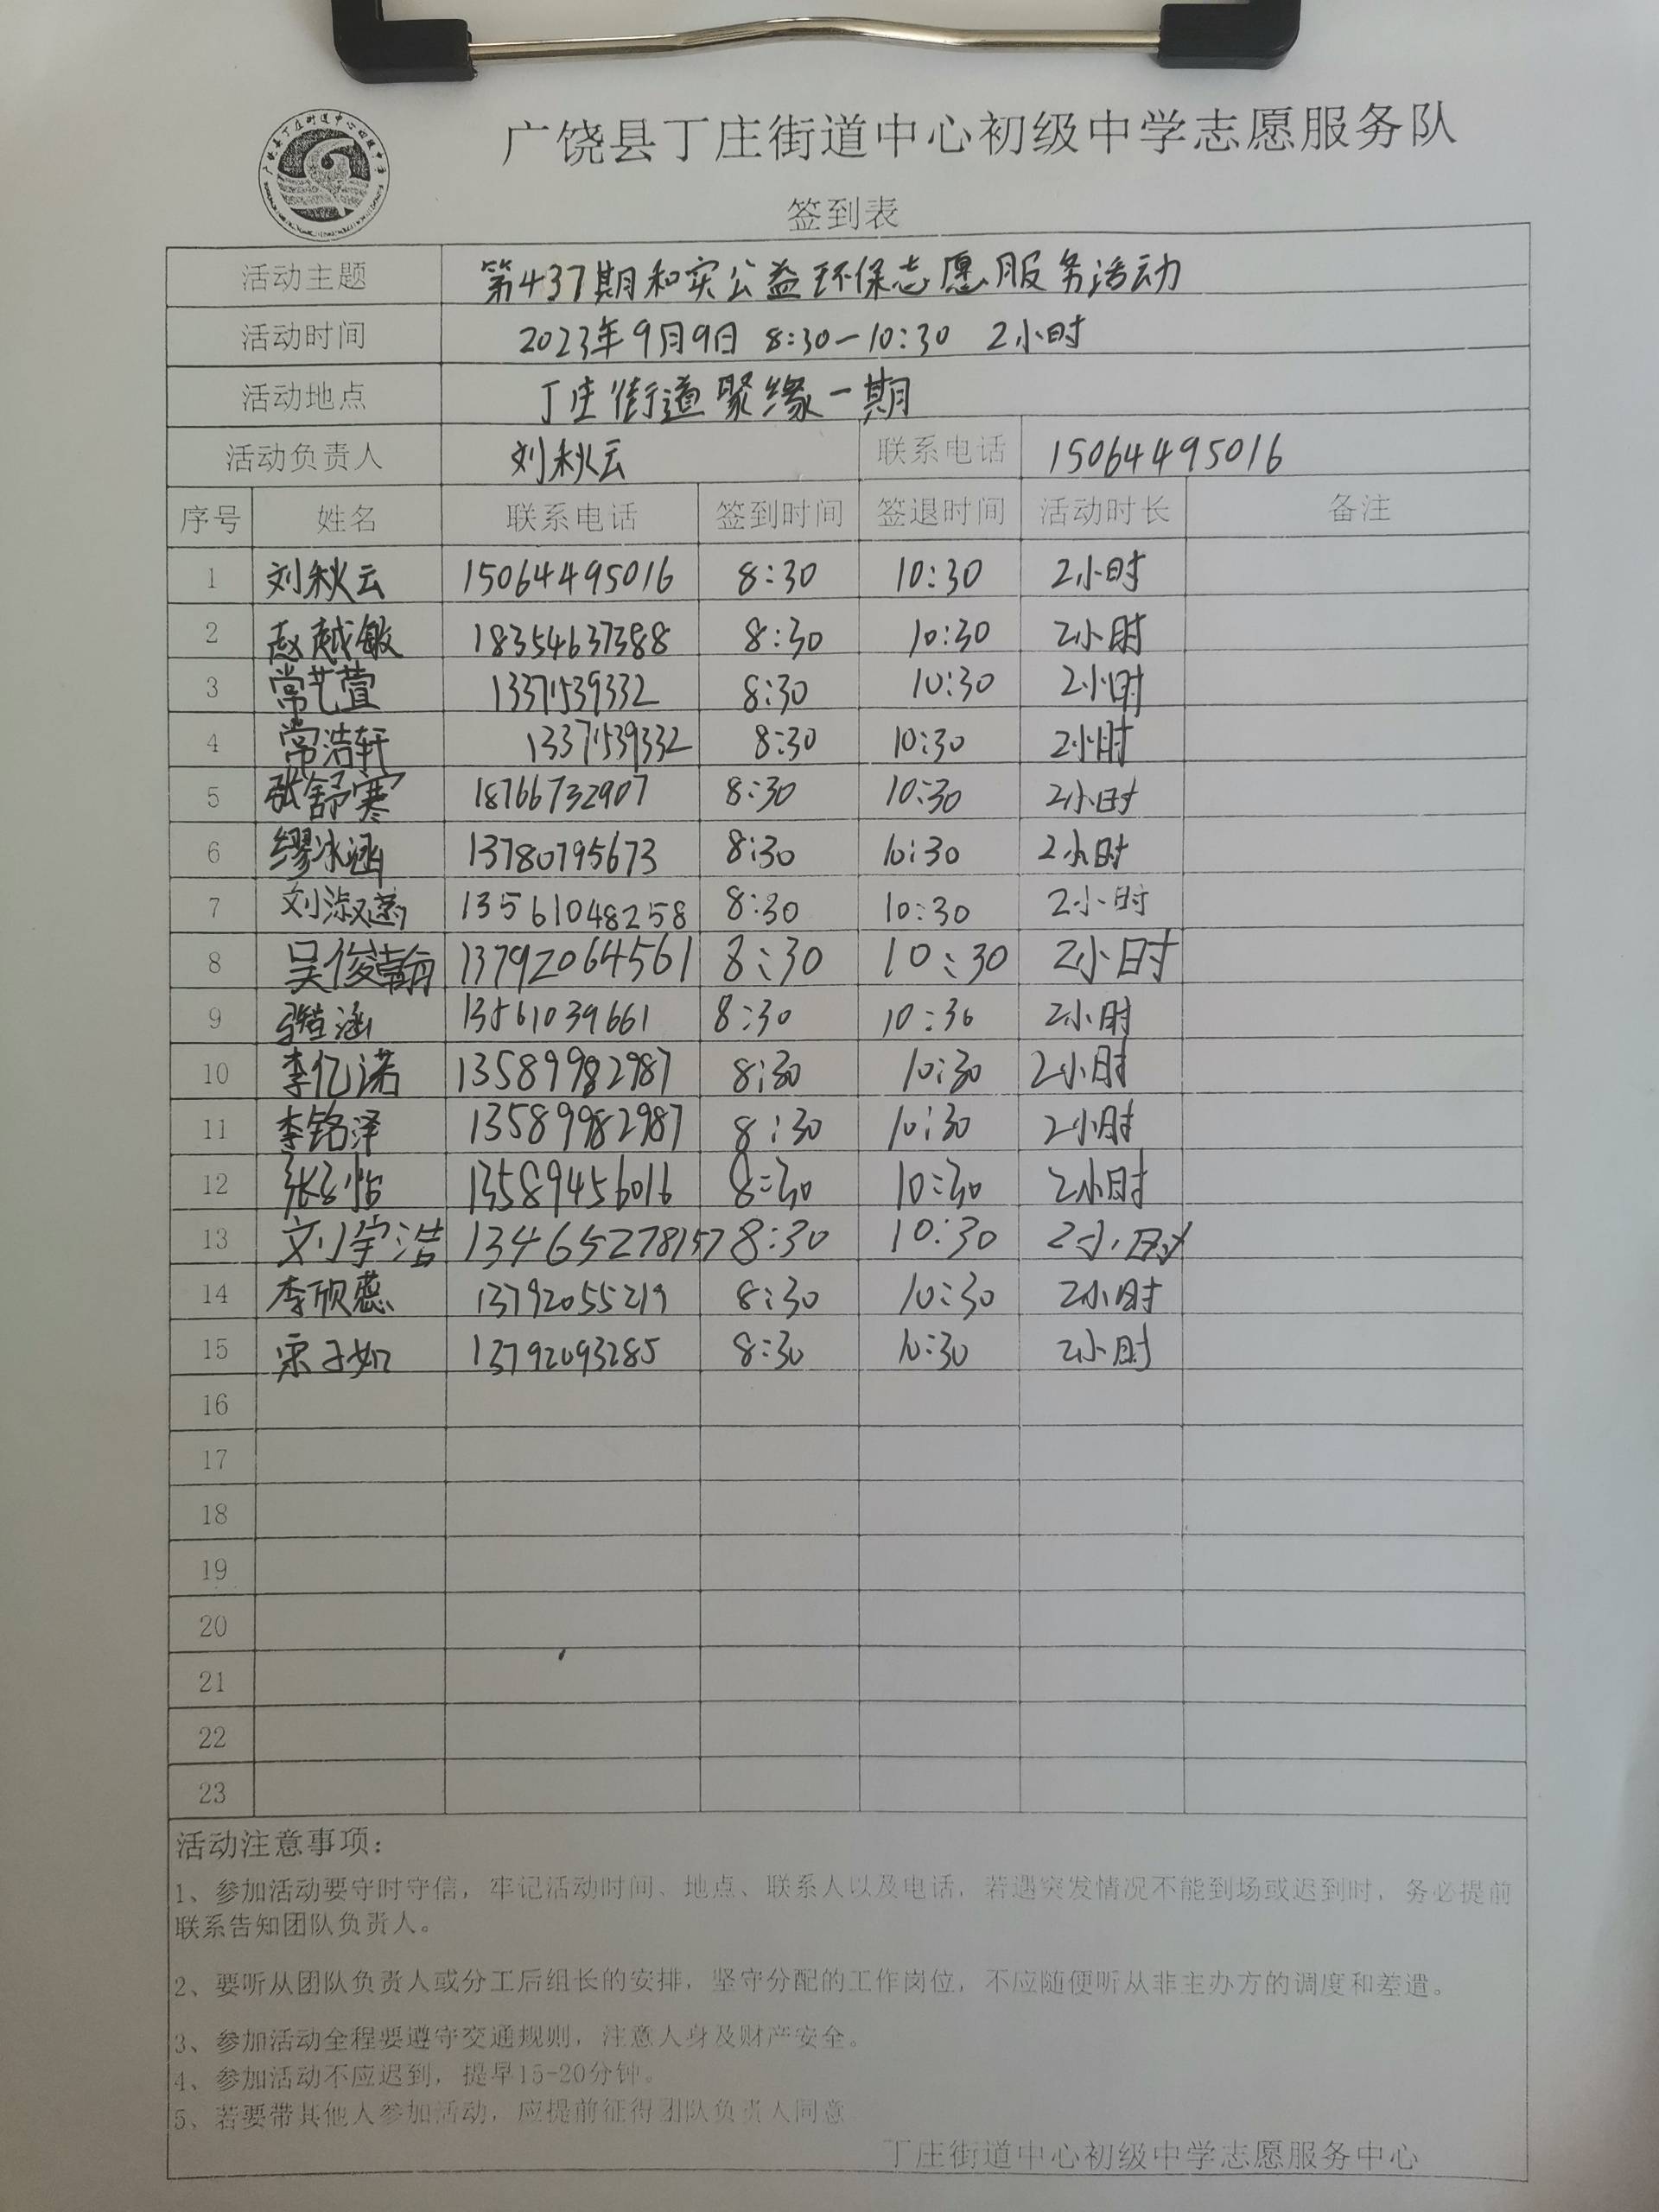 广饶县丁庄街道中心初级中学志愿服务队
签到表
活动主题 第437期和实公益环保志愿服务活动
活动时间 2023年9月9日 8:30-10:30 2小时
活动地点 丁庄街道聚缘一期
活动负责人 刘秋云 联系电话 15064495016
序号 姓名 联系电话 签到时间 签退时间 活动时长 备注
1 刘秋云 15064495016 8:30 10:30 2小时
2 赵越敏 18354637388 8:30 10:30 2小时
3 常艺萱 13371539332 8:30 10:30 2小时
4 常浩轩 13371539332 8:30 10:30 2小时
5 张舒寒 18766732907 8:30 10:30 2小时
6 缪冰涵 13780795673 8:30 10:30 2小时
7 刘淑 13561048258 8:30 10:30 2小时
8 吴俊翰 13792064561 8:30 10:30 2小时
9 涵 13561039661 8:30 10:30 2小时
10 李亿诺 13589982987 8:30 10:30 2小时
11 李铭泽 13589982987 8:30 10:30 2小时
12 张子怡 13589456016 8:30 10:30 2小时
13 刘宇浩 13465278157 8:30 10:30 2小时
14 李欣蕊 13792055219 8:30 10:30 2小时
15 宋子如 13792093285 8:30 10:30 2小时
16
17
18
19
20
21
22
23
活动注意事项：
1、参加活动要守时守信，牢记活动时间、地点、联系人以及电话，若遇突发情况不能到场或迟到时，务必提前
联系告知团队负责人。
2、要听从团队负责人或分工后组长的安排，坚守分配的工作岗位，不应随便听从非主办方的调度和差遣。
3、参加活动全程要遵守交通规则，注意人身及财产安全。
4、参加活动不应迟到，提早15-20分钟。
5、若要带其他人参加活动，应提前征得团队负责人同意
丁庄街道中心初级中学志愿服务中心